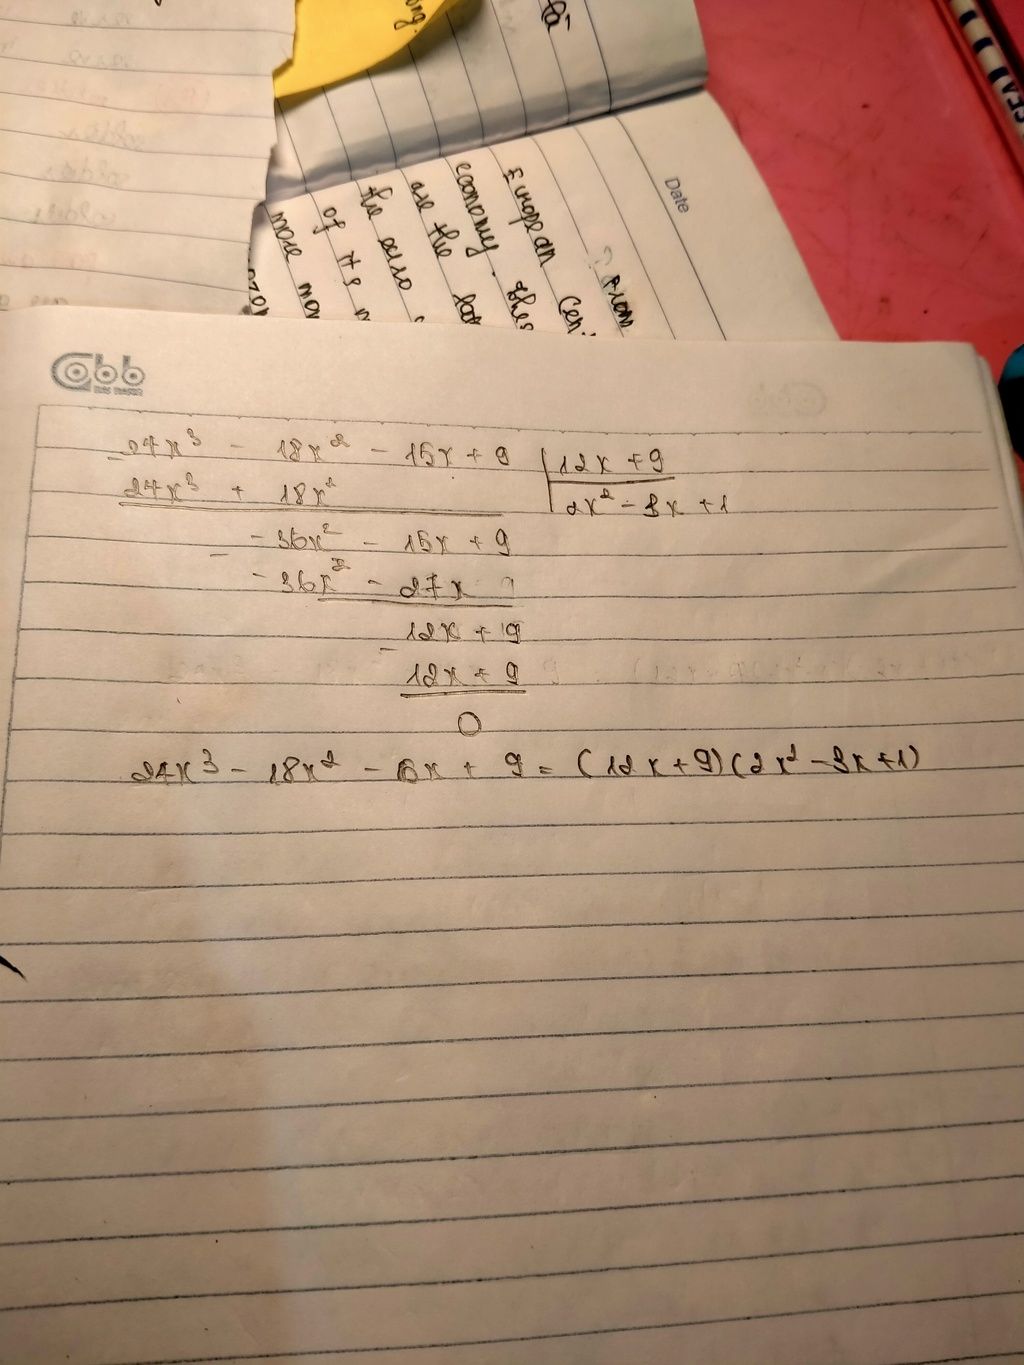 Date
From
European Cen
economy. thes
are the lat
the euro
of its
more mon
Cobb
24x³ - 18x² - 15x + 9 | 12x + 9
24x³ + 18x² | 2x² - 3x + 1
- 36x² - 15x + 9
- 36x² - 27x
12x + 9
12x + 9
0
24x³ - 18x² - 15x + 9 = (12x + 9)(2x² - 3x + 1)